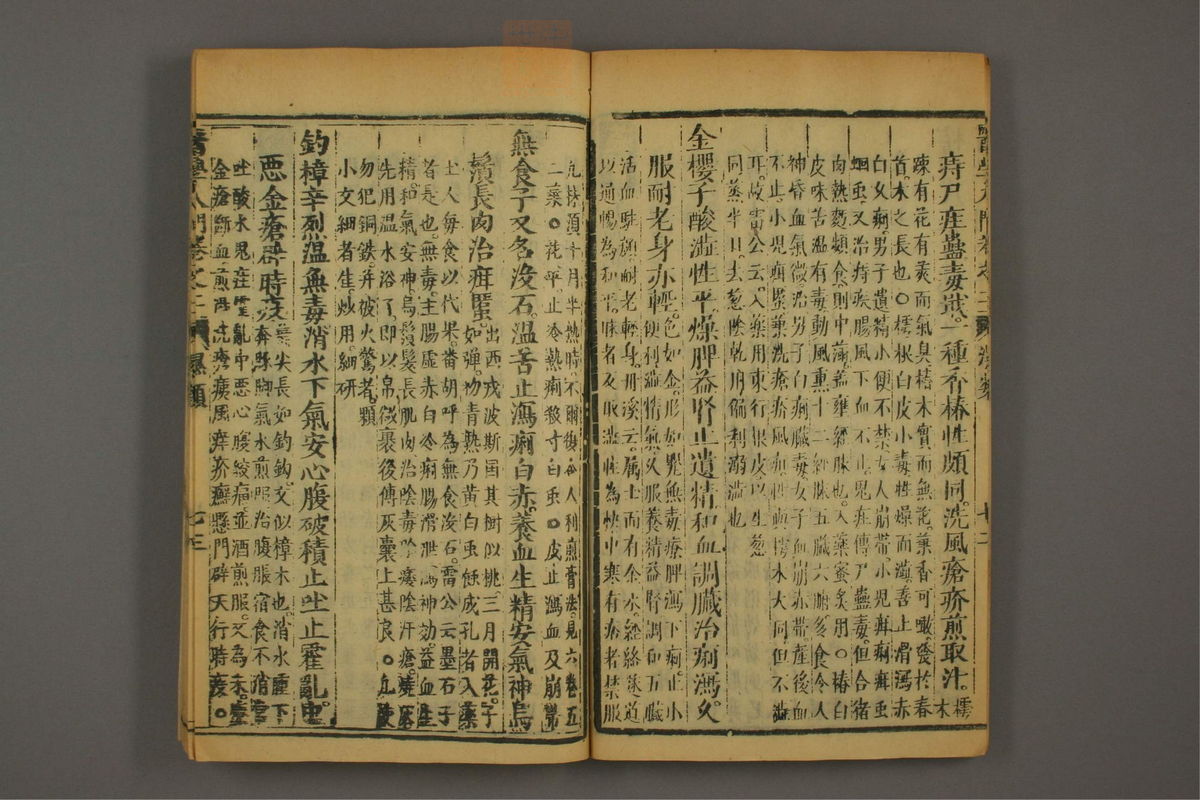 痔尸疰蠱毒堪一種香椿性頗同洗風瘡疥煎取汁樗木
踈有花有莢而氣臭椿木實而無花葉香可啖發於春
首木之長也○樗根白皮小毒性燥而澁善止滑瀉赤
白久痢男子遺精小便不禁女人崩帶小兒疳痢疳虫
蛔虫又治痔疾腸風下血不止鬼疰傳尸蠱毒但合猪
肉熱麪頻食則中滿蓋壅經脉也入藥蜜炙用○椿白
皮味苦溫有毒動風熏十二經脉五臟六腑多食令人
神昏血氣微治男子白痢臟毒女子血崩赤帶產後血
不止小兒疳葉兼洗瘡疥風疽性與樗木大同但不澁
耳故雷公云入藥用東行根皮以生葱
同蒸半日去葱陰乾用偏利溺澁也
金櫻子酸澁性平燥脾益腎止遺精和血調臟治痢瀉久
服耐老身亦輕色如金形如罌無毒療脾瀉下痢止小便利澁精氣久服養精益腎調和五臟
活血駐顏耐老輕身丹溪云屬土而有金水經絡隧道
以通暢為和平昧者反取澁性為快中寒有痞者禁服
醫學入門卷之二 溼類 七十二
九採須十月半熟時不爾復令人利煎膏法見六卷五
二藥○花平止冷熱痢殺寸白虫○皮止瀉血及崩帶
無食子又名沒石溫苦止瀉痢白赤養血生精安氣神烏
鬚長肉治疳䘌出西戎波斯国其樹似桃三月開花子如彈物青熟乃黃白虫蝕成孔者入藥
土人每食以代果番胡呼為無食沒石雷公云墨石子
者是也無毒主腸虛赤白冷痢腸滑泄瀉神効益血生
精和氣安神烏鬚髮長肌肉治陰毒陰痿陰汗瘡燒灰
先用溫水浴了即以帛微裹後傅灰囊上甚良○凡使
勿犯銅鉄并被火驚者顆
小文細者生炒用細研
釣樟辛烈溫無毒消水下氣安心腹破積止𠰷止霍亂中
惡金瘡辟時疫葉尖長如釣鈎文似樟木也消水腫下奔豚脚氣水煎服治腹脹宿食不消常
吐酸水鬼疰霍亂中惡心腹絞痛並酒煎服又為末塞
金瘡斷血煎湯洗瘡痍風癢疥癬懸門辟天行時疫○
醫學入門卷之二 溼類 七十三